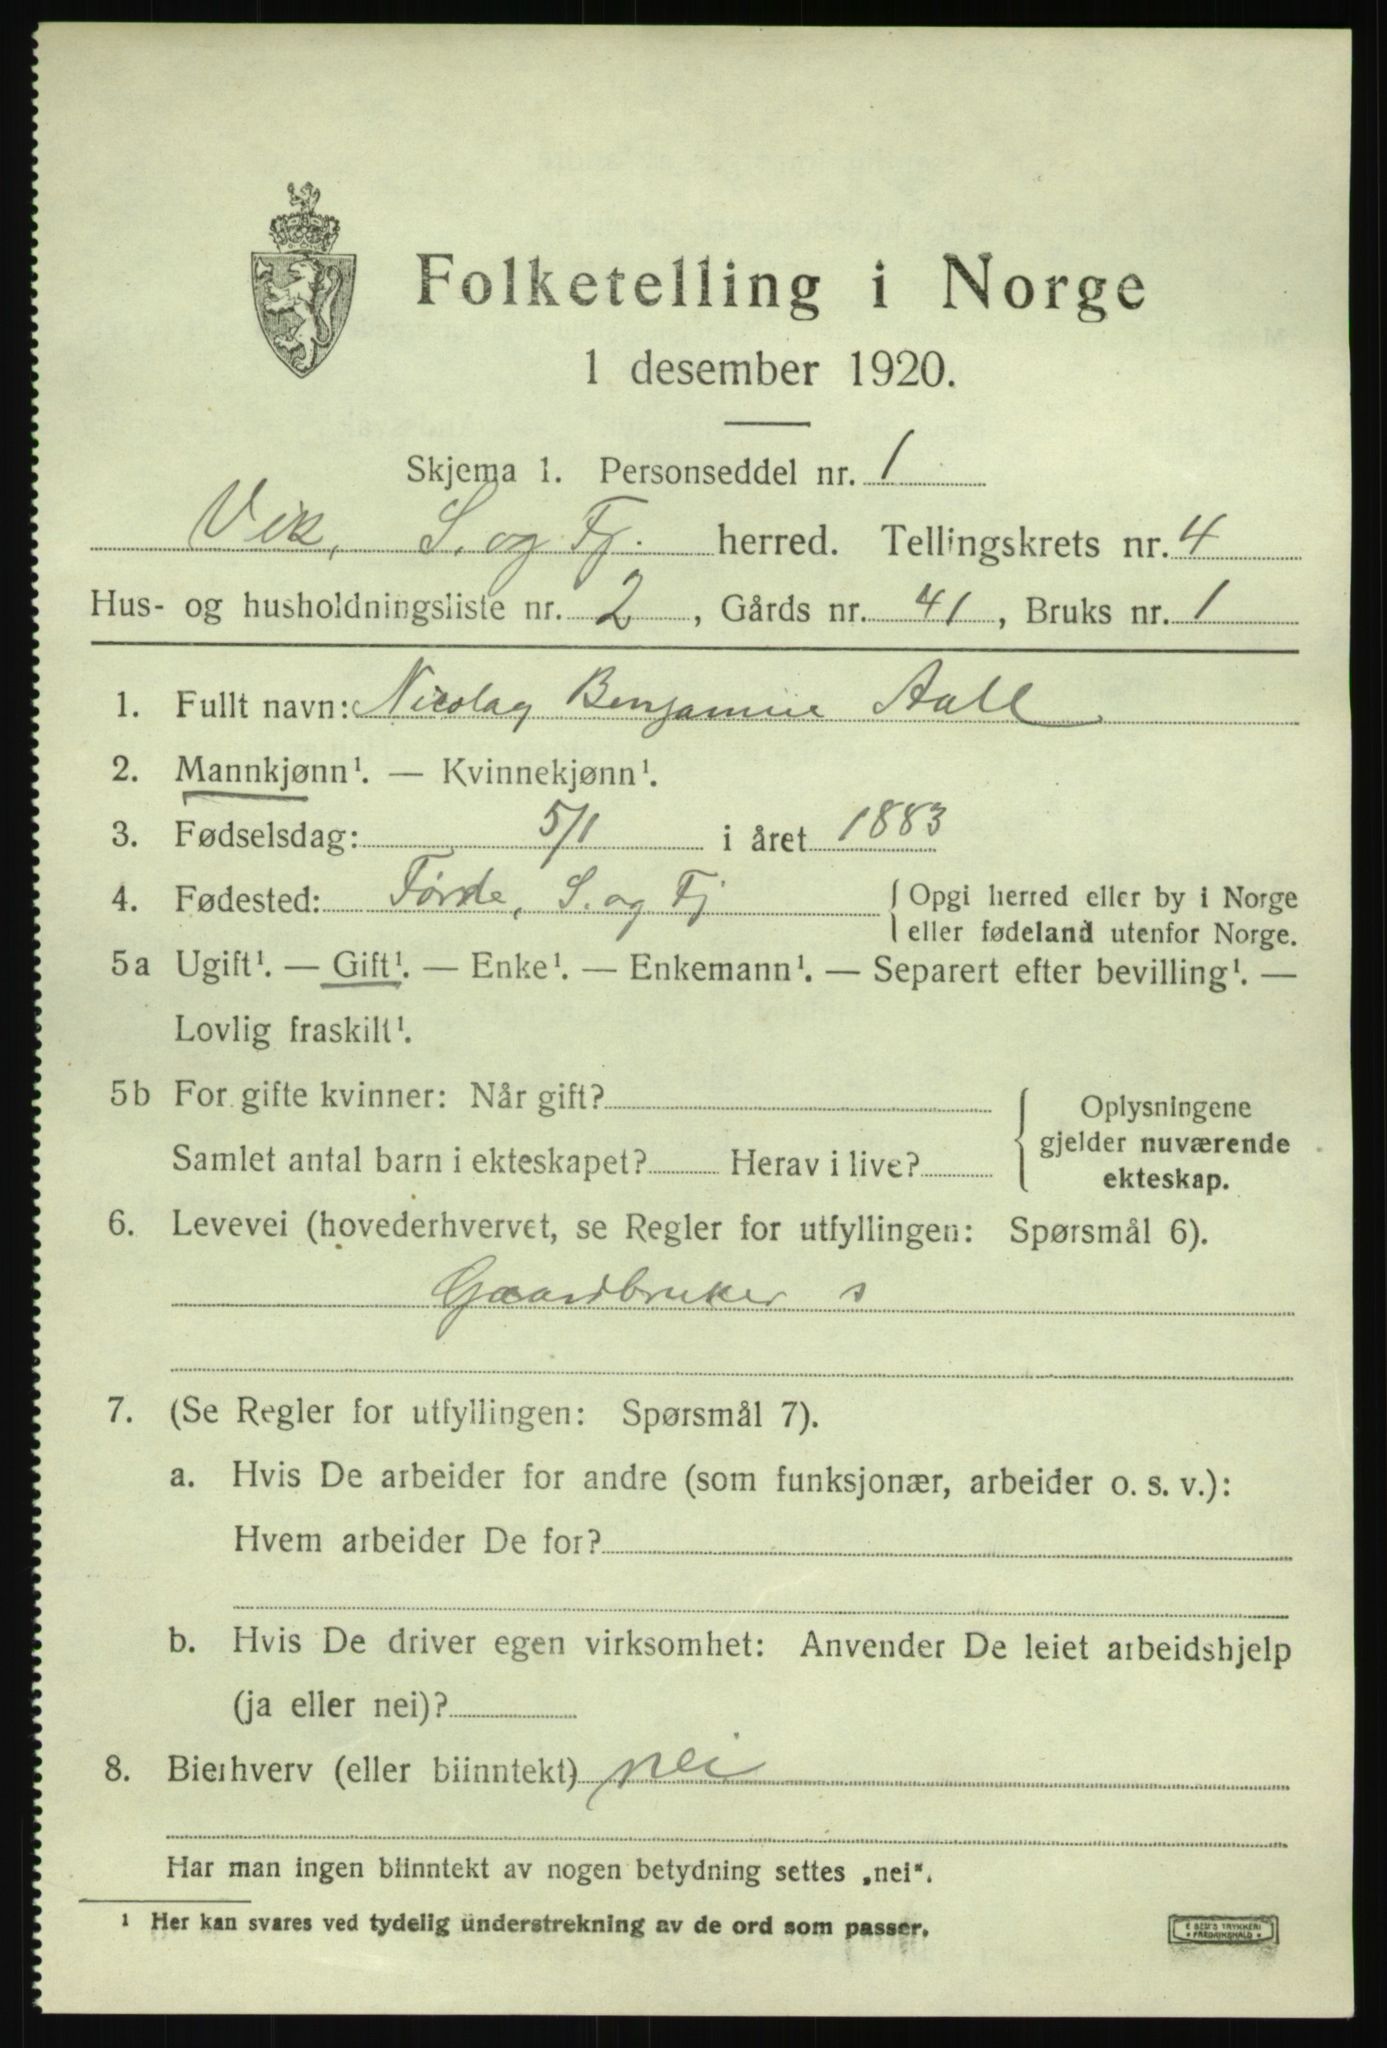 Folketelling i Norge
1 desember 1920.
Skjema 1. Personseddel nr. 1
Vik, S. og Fj. herred. Tellingskrets nr. 4
Hus- og husholdningsliste nr. 2, Gårds nr. 41, Bruks nr. 1
1. Fullt navn: Nicolay Benjamin Aall
2. Mannkjønn¹. — Kvinnekjønn¹.
3. Fødselsdag: 5/1 i året 1883
4. Fødested: Førde, S. og Fj { Opgi herred eller by i Norge
eller fødeland utenfor Norge.
5a Ugift¹. — Gift¹. — Enke¹. — Enkemann¹. — Separert efter bevilling¹. —
Lovlig fraskilt¹.
5b For gifte kvinner: Når gift?
Samlet antal barn i ekteskapet? Herav i live?
Oplysningene
gjelder nuværende
ekteskap.
6. Levevei (hovederhvervet, se Regler for utfyllingen: Spørsmål 6).
Gaardbruker s
7. (Se Regler for utfyllingen: Spørsmål 7).
a. Hvis De arbeider for andre (som funksjonær, arbeider o. s. v.):
Hvem arbeider De for?
b. Hvis De driver egen virksomhet: Anvender De leiet arbeidshjelp
(ja eller nei)?
8. Bierhverv (eller biinntekt) nei
Har man ingen biinntekt av nogen betydning settes „nei".
¹ Her kan svares ved tydelig understrekning av de ord som passer.
E SEM'S TRYKKERI
* FREDRIKSHALD *